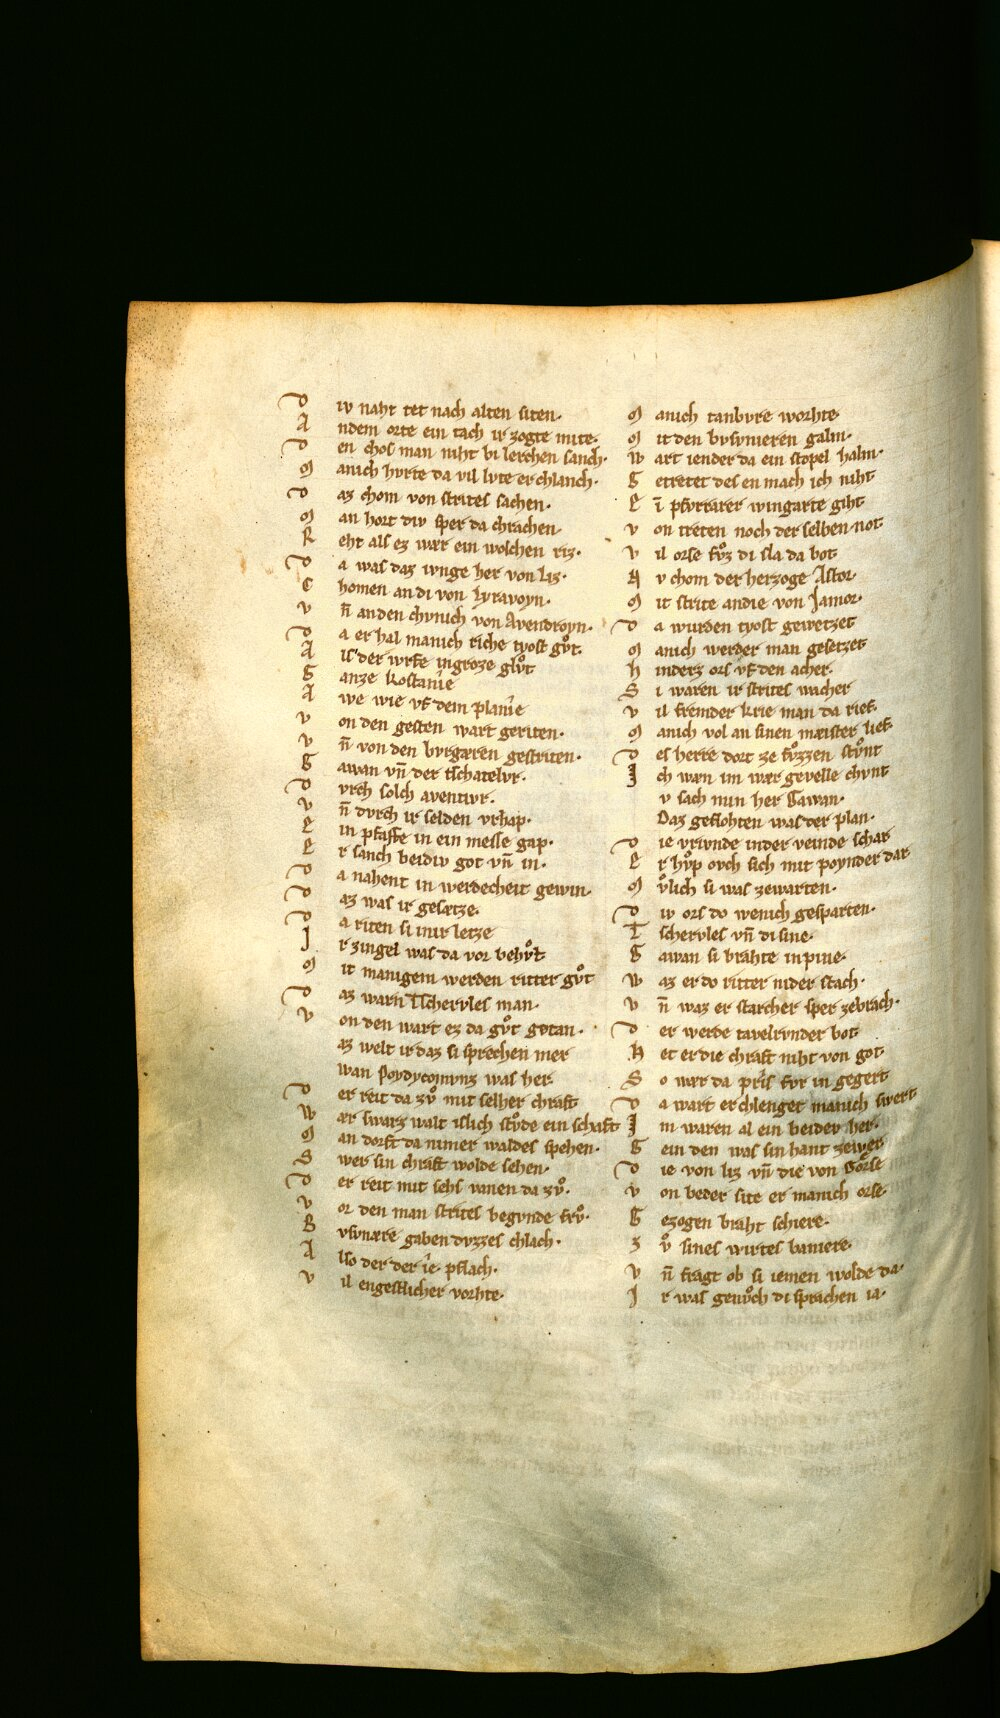 D iv naht tet nach alten siten·
A ndem orte ein tach ir zogte mite·
D en chos man niht bi lerchen sanch·
M anich hvrte da vil lvte erchlanch·
D az chom von strites sachen·
M an hort div sper da chrachen
R eht als ez wær ein wolchen riz·
D a was daz ivnge her von Liz·
C homen an di von Lyravoyn·
V n̄ anden chvnich von Avendroyn·
D a er hal manich riche tyost gv̊t·
A ls der wrfe ingroze glv̊t
G anze kostanîe
A we wie vf dem planîe
V on den gesten wart geriten·
V n̄ von den bvrgæren gestriten·
G awan vn̄ der tschatelvr·
D vrch solch aventivr·
V n̄ dvrch ir selden vrhap·
E in pfaffe in ein messe gap·
E r sanch beidiv got vn̄ in·
D a nahent in werdecheit gewin·
D az was ir gesætze·
D a riten si inir letze
J r zingel was da vor behv̊t
M it manigem werden ritter gv̊t
D az warn Tschervles man·
V on den wart ez da gv̊t getan·
az welt ir daz si sprechen mer
wan Poydyconvnz was her·
D er reit da zv̊ mit selher chraft
W ær swarz walt islich stv̊de ein schaft
M an dorft da nimer waldes spehen·
S wer sin chraft wolde sehen·
D er reit mit sehs vanen da zv̊·
V or den man strites begvnde frv̊·
B vsvnære gaben dvzzes chlach·
A lso der der îe pflach·
V il engestlicher vorhte·
M anich tanbvre worhte·
M it den bvsvnieren galm·
W art iender da ein stopel halm·
G etretet des en mach ich niht
E ī pfvrtærer wingarte giht
V on treten noch der selben not
V il orse fv̊z di sla da bot
N v chom der herzoge Astor·
M it strite andie von Jamor·
D a wurden tyost gewetzet
M anich werder man gesetzet
H inderz ors vf den acher·
S i waren ir strites wacher
V il fremder krie man da rief·
M anich vol an sinen mæister lief·
D es herre dort ze fv̊zzen stv̊nt
J ch wæn im wær gevelle chvnt
v sach nun her Gawan·
Daz geflohten was der plan·
D ie vrivnde inder veinde schar
E r hv̊p ovch sich mit poynder dar
M v̊lich si was zewarten·
D iv ors do wenich gesparten·
T schervles vn̄ di sine·
G awan si brahte inpine·
W az er do ritter nider stach·
V n̄ waz er starcher sper zebrach·
D er werde tavelrvnder bot·
H et er die chraft niht von got·
S o wær da prîs fvr in gegert
D a wart erchlenget manich swert
J m waren al ein beider her·
G ein den was sin hant zewer
D ie von liz vn̄ die von Gorse
V on beder site er manich orse·
G ezogen braht schiere·
Z v̊ sines wirtes baniere·
V n̄ fragt ob si iemen wolde da·
J r was genv̊ch di sprachen ia·